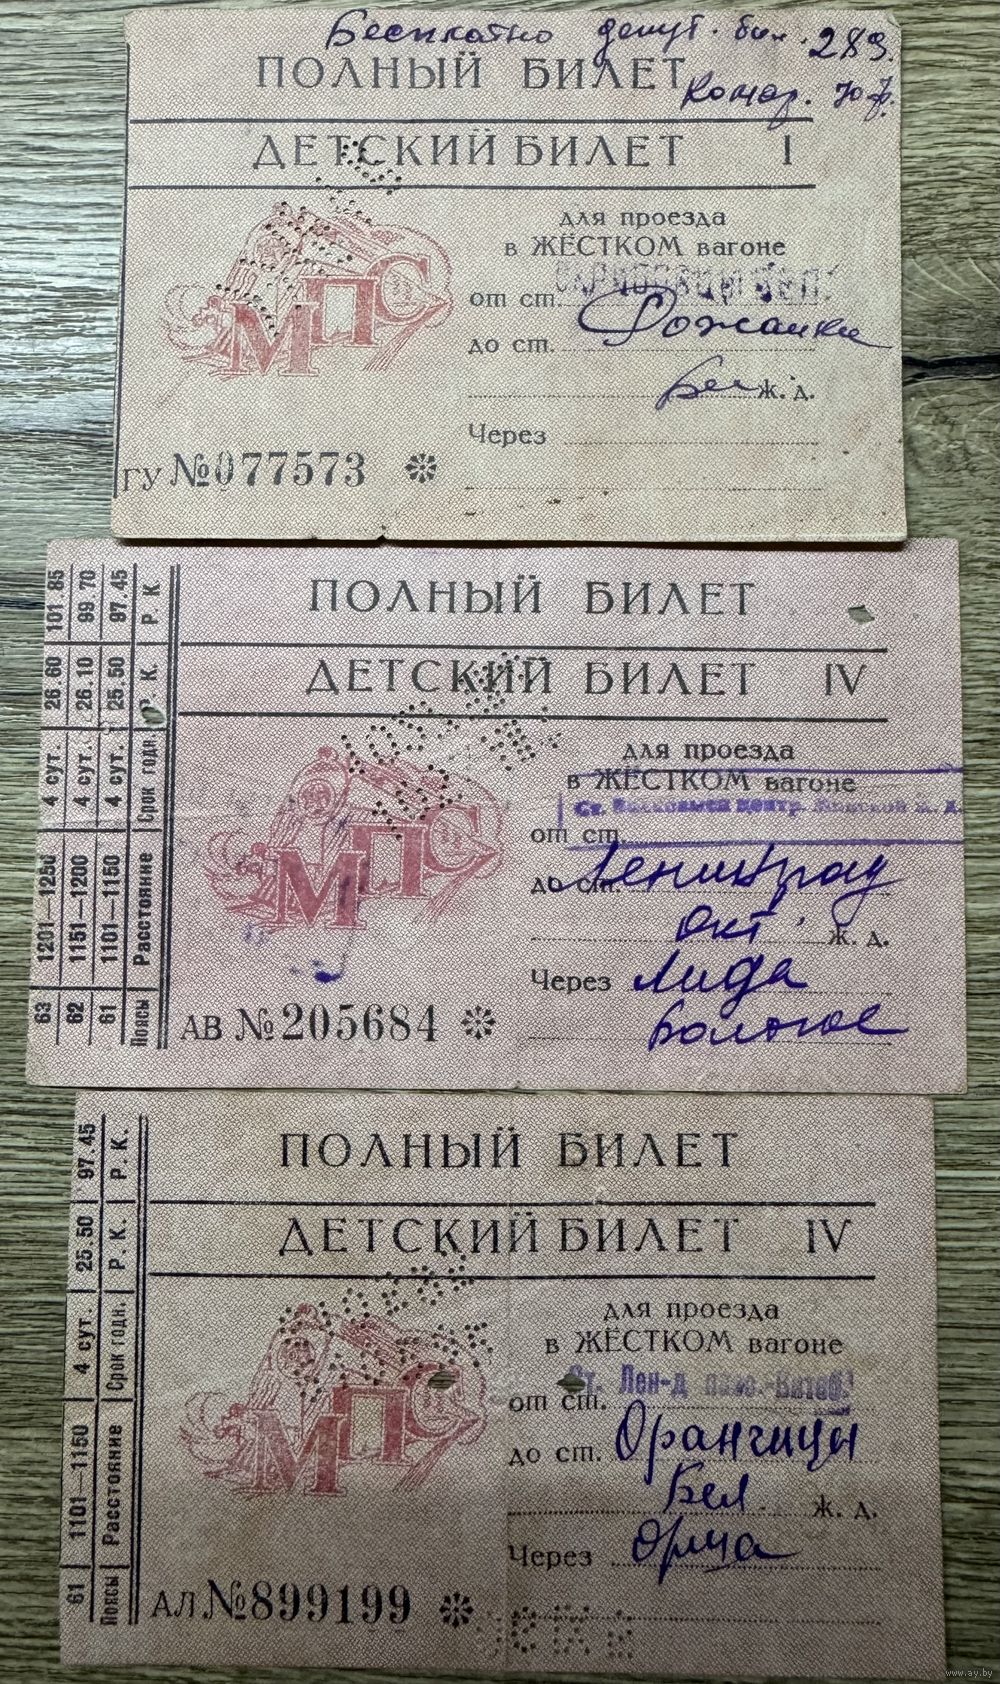 Бесплатно депут. бил. 289.
ПОЛНЫЙ БИЛЕТ
ДЕТСКИЙ БИЛЕТ I
для проезда
в ЖЁСТКОМ вагоне
от ст.
до ст. Рожанки
Бел ж. д.
Через
МПС
ГУ №077573
ПОЛНЫЙ БИЛЕТ
ДЕТСКИЙ БИЛЕТ IV
для проезда
в ЖЁСТКОМ вагоне
Ст. Волковыск центр. Минской ж. д.
от ст.
до ст. Ленинград
окт. ж. д.
Через Лида
Бологое
МПС
АВ №205684
63 1201—1250 4 сут. 26.60 101.85
62 1151—1200 4 сут. 26.10 99.70
61 1101—1150 4 сут. 25.50 97.45
Поясы Расстояние Срок годн. Р. К. Р. К.
ПОЛНЫЙ БИЛЕТ
ДЕТСКИЙ БИЛЕТ IV
для проезда
в ЖЁСТКОМ вагоне
Ст. Лен-д пасс.-Витеб.
от ст.
до ст. Оранчицы
Бел. ж. д.
Через Орша
МПС
АЛ №899199
61 1101—1150 4 сут. 25.50 97.45
Поясы Расстояние Срок годн. Р. К. Р. К.
www.ay.by